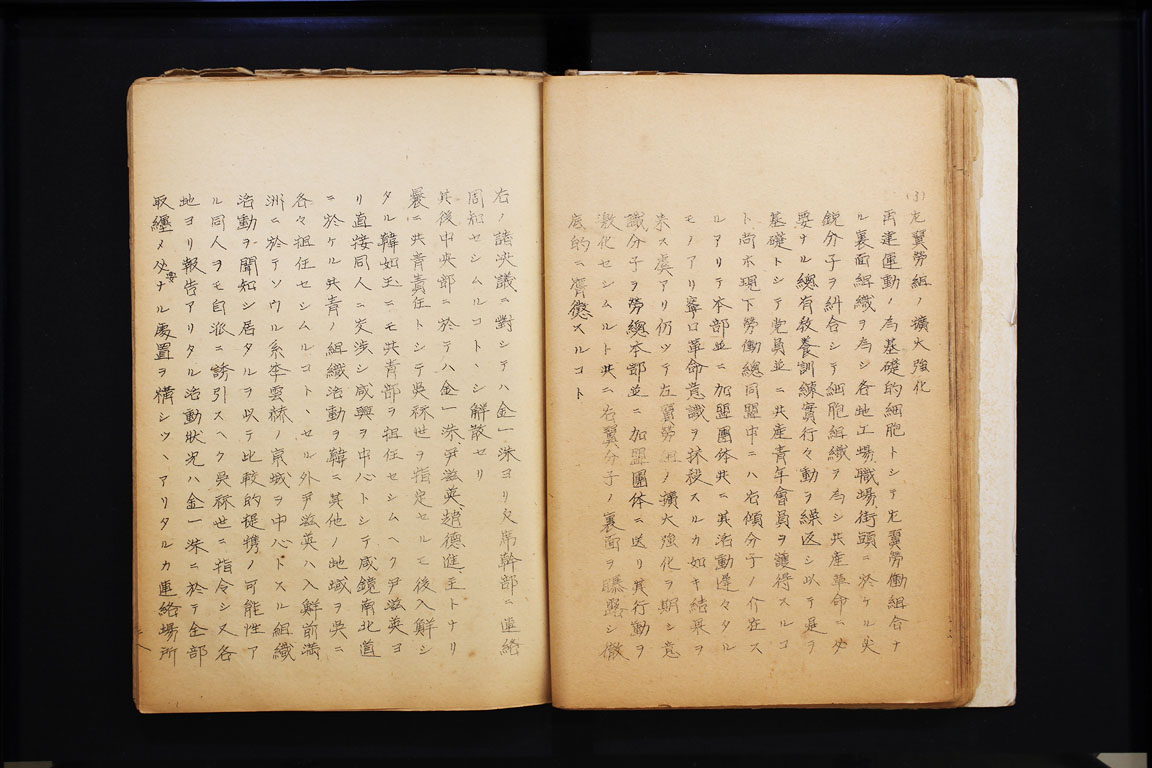 (3)左翼勞組ノ擴大強化
再建運動ノ為基礎的細胞トシテ左翼勞働組合ナ
ル裏面組織ヲ為シ各地工場職場、街頭ニ於ケル尖
鋭分子ヲ糾合シテ細胞組織ヲ為シ共産革命ニ必
要ナル總有教養訓練實行々動ヲ繰返シ以テ是ヲ
基礎トシテ党員並ニ共産青年會員ヲ獲得スルコ
ト尚ホ現下勞働總同盟中ニハ右傾分子ノ介在ス
ルアリテ本部並ニ加盟團体共ニ其活動遅々タル
モノアリ寧ロ革命意識ヲ抹殺スルカ如キ結果ヲ
来ス虞アリ仍ツテ左翼勞組ノ擴大強化ヲ期シ意
識分子ヲ勞總本部並ニ加盟團体ニ送リ其行動ヲ
激化セシムルト共ニ右翼分子ノ裏面ヲ曝露シ徹
底的ニ膺懲スルコト
右ノ諸決議ニ對シテハ金一洙ヨリ欠席幹部ニ連絡
周知セシムルコトヽシ解散セリ
其後中央部ニ於テハ金一洙、尹滋英、趙德進主トナリ
曩ニ共青責任トシテ吳秝世ヲ指定セルモ後入鮮シ
タル韓如玉ニモ共青部ヲ担任セシムヘク尹滋英ヨ
リ直接同人ニ交渉シ咸興ヲ中心トシテ咸鏡南北道
ニ於ケル共青ノ組織活動ヲ韓ニ其他ノ地域ヲ吳ニ
各々担任セシムルコトヽセル外尹滋英ハ入鮮前満
洲ニ於テソウル系李雲秝ノ京城ヲ中心トスル組織
活動ヲ聞知シ居タルヲ以テ比較的提携ノ可能性ア
ル同人ヲモ自派ニ誘引スヘク吳秝世ニ指令シ又各
地ヨリ報告アリタル活動狀況ハ金一洙ニ於テ全部
取纒メ必要ナル處置ヲ構シツヽアリタルカ連絡場所